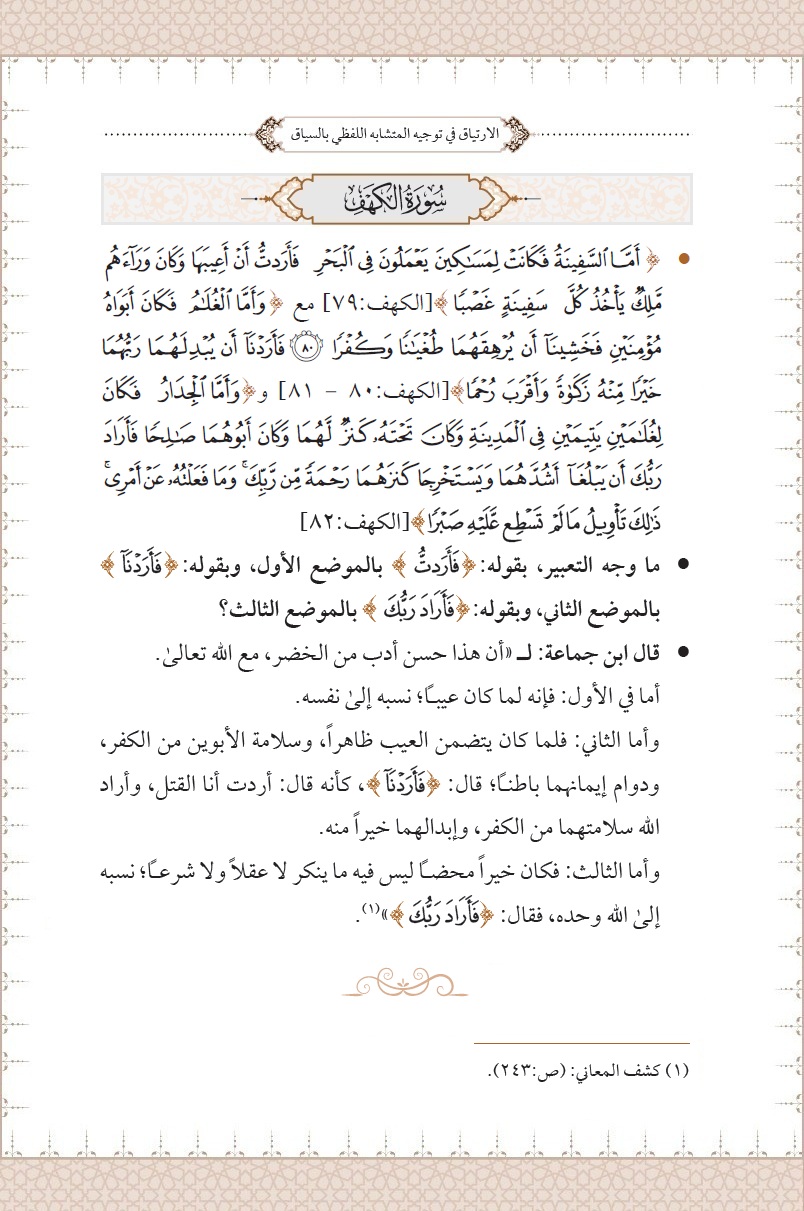 الارتياق في توجيه المتشابه اللفظي بالسياق
سُورَةُ الكَهْفِ
• ﴿ أَمَّا ٱلسَّفِينَةُ فَكَانَتۡ لِمَسَٰكِينَ يَعۡمَلُونَ فِي ٱلۡبَحۡرِ فَأَرَدتُّ أَنۡ أَعِيبَهَا وَكَانَ وَرَآءَهُم
مَّلِكٞ يَأۡخُذُ كُلَّ سَفِينَةٍ غَصۡبٗا ﴾[الكهف:٧٩] مع ﴿ وَأَمَّا ٱلۡغُلَٰمُ فَكَانَ أَبَوَاهُ
مُؤۡمِنَيۡنِ فَخَشِينَآ أَن يُرۡهِقَهُمَا طُغۡيَٰنٗا وَكُفۡرٗا ۝٨٠ فَأَرَدۡنَآ أَن يُبۡدِلَهُمَا رَبُّهُمَا
خَيۡرٗا مِّنۡهُ زَكَوٰةٗ وَأَقۡرَبَ رُحۡمٗا﴾[الكهف:٨٠ – ٨١] و﴿وَأَمَّا ٱلۡجِدَارُ فَكَانَ
لِغُلَٰمَيۡنِ يَتِيمَيۡنِ فِي ٱلۡمَدِينَةِ وَكَانَ تَحۡتَهُۥ كَنزٞ لَّهُمَا وَكَانَ أَبُوهُمَا صَٰلِحٗا فَأَرَادَ
رَبُّكَ أَن يَبۡلُغَآ أَشُدَّهُمَا وَيَسۡتَخۡرِجَا كَنزَهُمَا رَحۡمَةٗ مِّن رَّبِّكَۚ وَمَا فَعَلۡتُهُۥ عَنۡ أَمۡرِيۚ
ذَٰلِكَ تَأۡوِيلُ مَا لَمۡ تَسۡطِع عَّلَيۡهِ صَبۡرٗا﴾[الكهف:٨٢]
• ما وجه التعبير، بقوله: ﴿فَأَرَدتُّ ﴾ بالموضع الأول، وبقوله: ﴿فَأَرَدۡنَآ ﴾
بالموضع الثاني، وبقوله: ﴿فَأَرَادَ رَبُّكَ ﴾ بالموضع الثالث؟
• قال ابن جماعة: لــ «أن هذا حسن أدب من الخضر، مع الله تعالىٰ.
أما في الأول: فإنه لما كان عيبـًا؛ نسبه إلىٰ نفسه.
وأما الثاني: فلما كان يتضمن العيب ظاهراً، وسلامة الأبوين من الكفر،
ودوام إيمانهما باطنـًا؛ قال: ﴿فَأَرَدۡنَآ ﴾، كأنه قال: أردت أنا القتل، وأراد
الله سلامتهما من الكفر، وإبدالهما خيراً منه.
وأما الثالث: فكان خيراً محضـًا ليس فيه ما ينكر لا عقلاً ولا شرعـًا؛ نسبه
إلىٰ الله وحده، فقال: ﴿فَأَرَادَ رَبُّكَ ﴾»(١).
(١) كشف المعاني: (ص:٢٤٣).